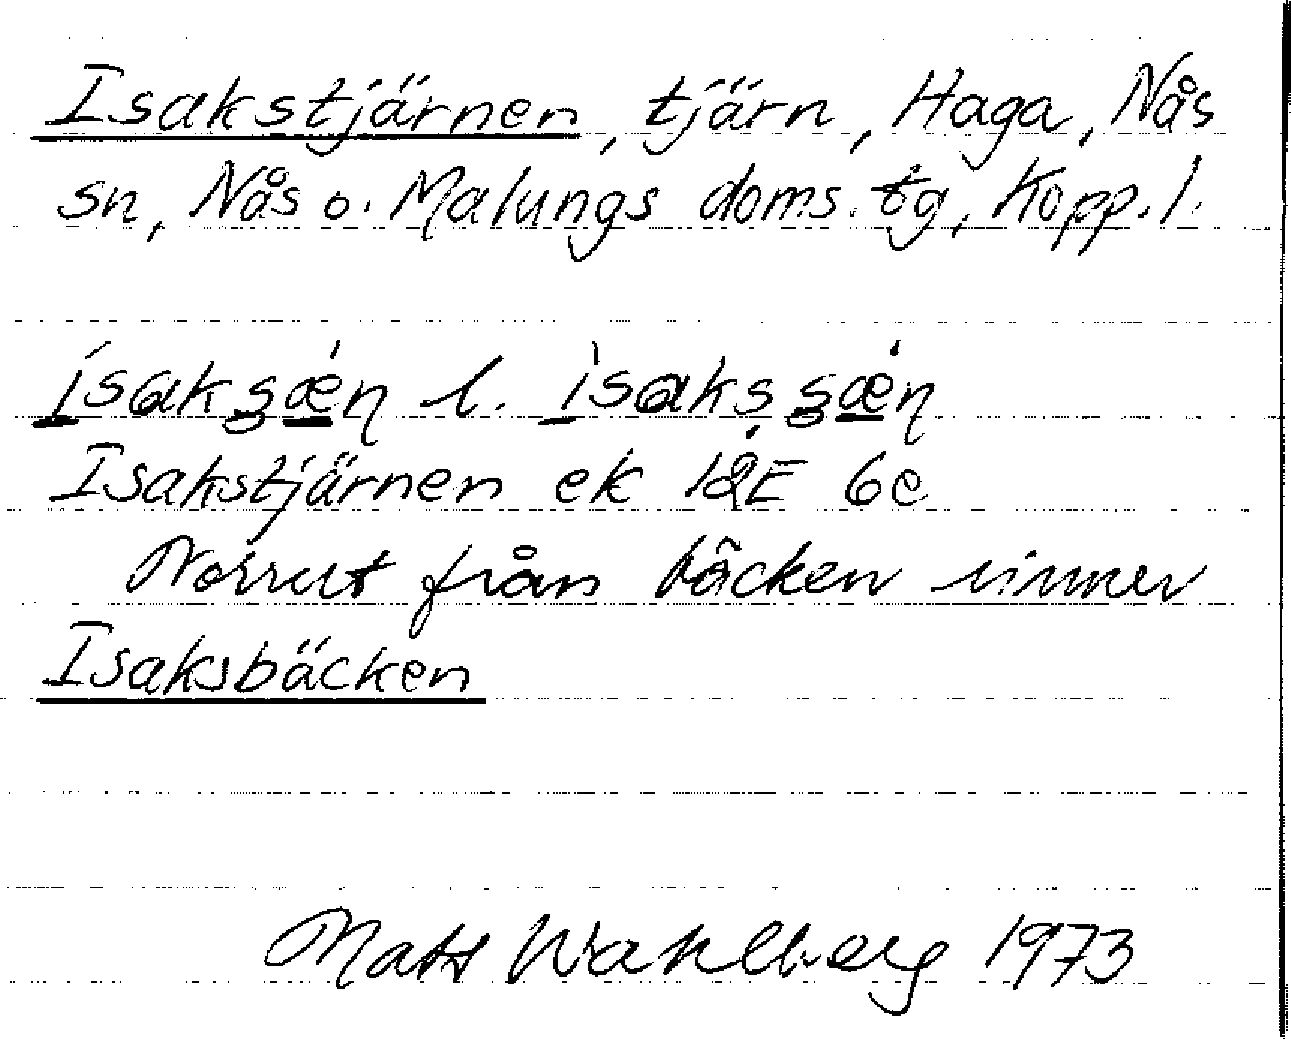 Isakstjärnen, tjärn, Haga, Nås
sn, Nås o. Malungs doms. tg, Kopp. l.
ísakʂǽɳ l. ìsakʂʂǽɳ
Isakstjärnen ek 12E 6e
Norrut från bäcken rinner
Isaksbäcken
Mats Wahlberg 1973